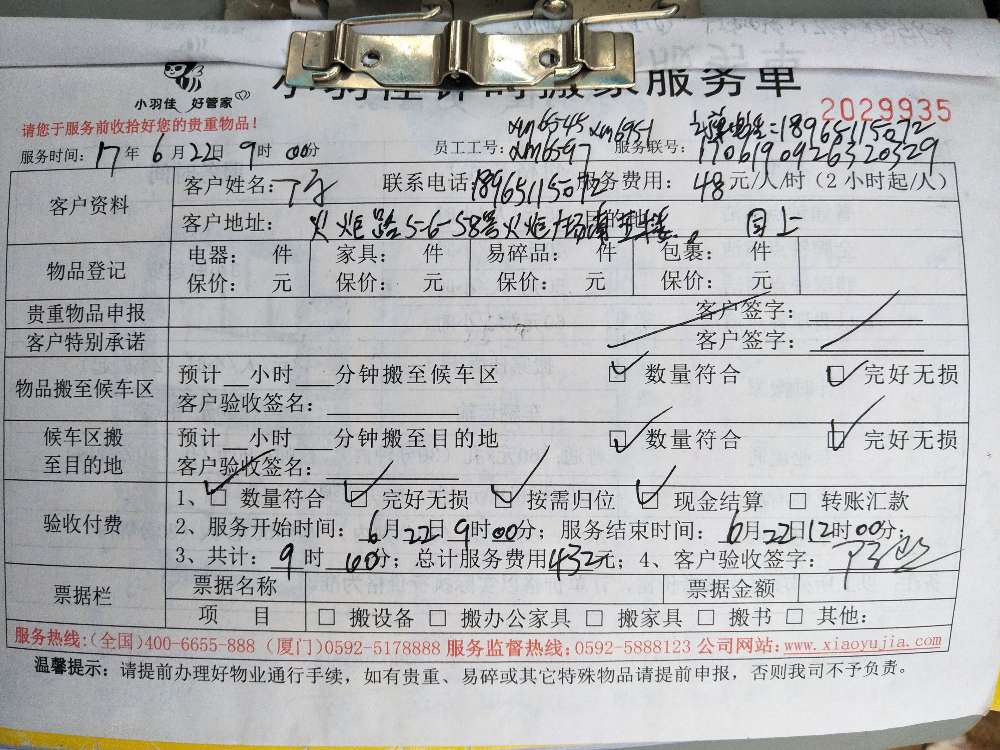 小羽佳 好管家
服务单
2029935
请您于服务前收拾好您的贵重物品!
xm6545 xm6951 18965115072
服务时间: 17年6月22日9时00分 员工工号: xm6597 服务联号: 1706190926320329
客户资料 客户姓名: 联系电话: 18965115072 服务费用: 48元/人/时(2小时起/人)
客户地址: 火炬路56-58号火炬广场 目的地:
物品登记 电器: 件 家具: 件 易碎品: 件 包裹: 件
保价: 元 保价: 元 保价: 元 保价: 元
贵重物品申报 客户签字:
客户特别承诺 客户签字:
物品搬至候车区 预计__小时___分钟搬至候车区 □ 数量符合 □ 完好无损
客户验收签名:
候车区搬至目的地 预计__小时___分钟搬至目的地 □ 数量符合 □ 完好无损
客户验收签名:
验收付费 1、□ 数量符合 □ 完好无损 □ 按需归位 □ 现金结算 □ 转账汇款
2、服务开始时间: 6月22日9时00分; 服务结束时间: 6月22日12时00分;
3、共计: 9时00分; 总计服务费用432元; 4、客户验收签字:
票据栏 票据名称 票据金额
项 目 □ 搬设备 □ 搬办公家具 □ 搬家具 □ 搬书 □ 其他:
服务热线:(全国)400-6655-888 (厦门)0592-5178888 服务监督热线:0592-5888123 公司网站:www.xiaoyujia.com
温馨提示: 请提前办理好物业通行手续, 如有贵重、易碎或其它特殊物品请提前申报, 否则我司不予负责。